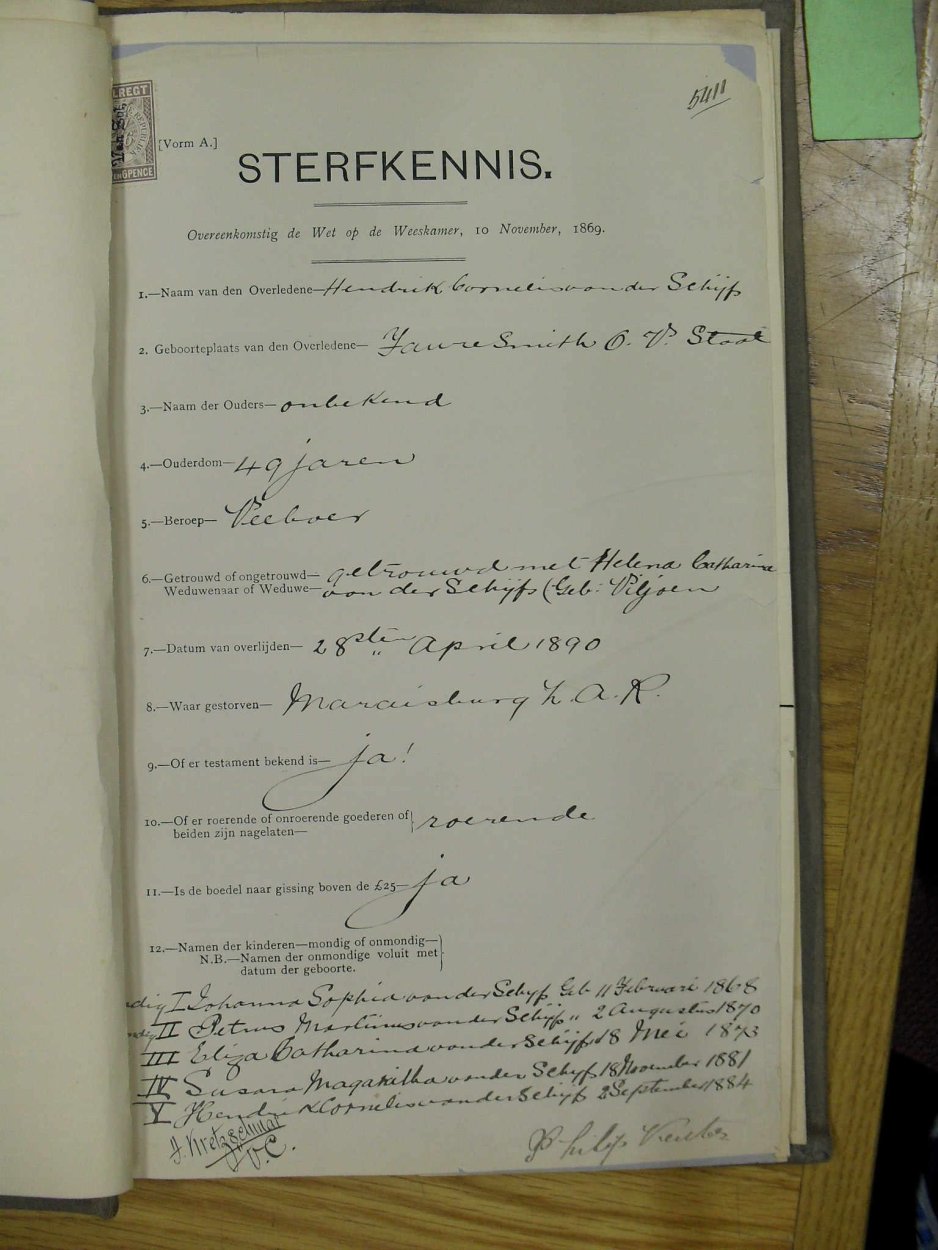 5411
[Vorm A.]
STERFKENNIS.
Overeenkomstig de Wet op de Weeskamer, 10 November, 1869.
1.—Naam van den Overledene— Hendrik Cornelis van der Schijf
2. Geboorteplaats van den Overledene— Faure Smith O. V. Staat
3.—Naam der Ouders— onbekend
4.—Ouderdom— 49 jaren
5.—Beroep— Veeboer
6.—Getrouwd of ongetrouwd— getrouwd met Helena Catharina
Weduwenaar of Weduwe— van der Schijf (Geb: Viljoen
7.—Datum van overlijden— 28sten April 1890
8.—Waar gestorven— Maraisburg Z. A. R.
9.—Of er testament bekend is— ja!
10.—Of er roerende of onroerende goederen of } roerende
beiden zijn nagelaten—
11.—Is de boedel naar gissing boven de £25— ja
12.—Namen der kinderen—mondig of onmondig— }
N.B.—Namen der onmondige voluit met
datum der geboorte.
I Johanna Sophia van der Schijf Geb 11 Februari 1868
II Petrus Martinus van der Schijf " 2 Augustus 1870
III Eliza Catharina van der Schijf 18 Mei 1873
IV Susara Magaritha van der Schijf 18 November 1881
V Hendrik Cornelis van der Schijf 2 September 1884
J. Kretzschmar
V.C.
Philip